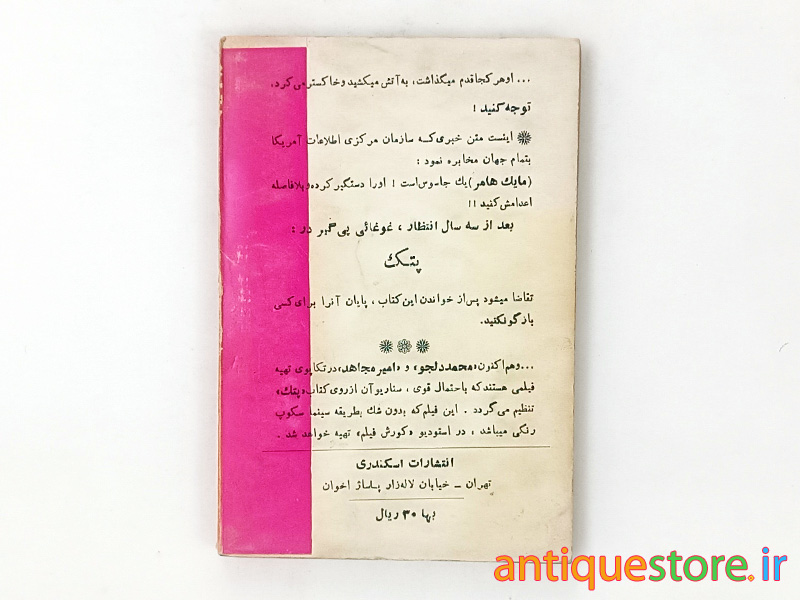 ... او هر کجا قدم میگذاشت، به آتش میکشید و خاکستر می کرد.
توجه کنید!
اینست متن خبری که سازمان مرکزی اطلاعات آمریکا
بتمام جهان مخابره نمود:
(مایک هامر) یک جاسوس است! اورا دستگیر کرده و بلافاصله
اعدامش کنید!!
بعد از سه سال انتظار، غوغائی پی گیر در:
پتک
تقاضا میشود پس از خواندن این کتاب، پایان آنرا برای کسی
بازگو نکنید.
... وهم اکنون «محمد دلجو» و «امیر مجاهد» در تکاپوی تهیه
فیلمی هستند که باحتمال قوی، سناریو آن از روی کتاب «پتک»
تنظیم می گردد. این فیلم که بدون شك بطریقه سینما سکوپ
رنگی میباشد، در استودیو «کورش فیلم» تهیه خواهد شد.
انتشارات اسکندری
تهران - خیابان لاله زار پاساژ اخوان
بها ۳۰ ریال
antiquestore.ir